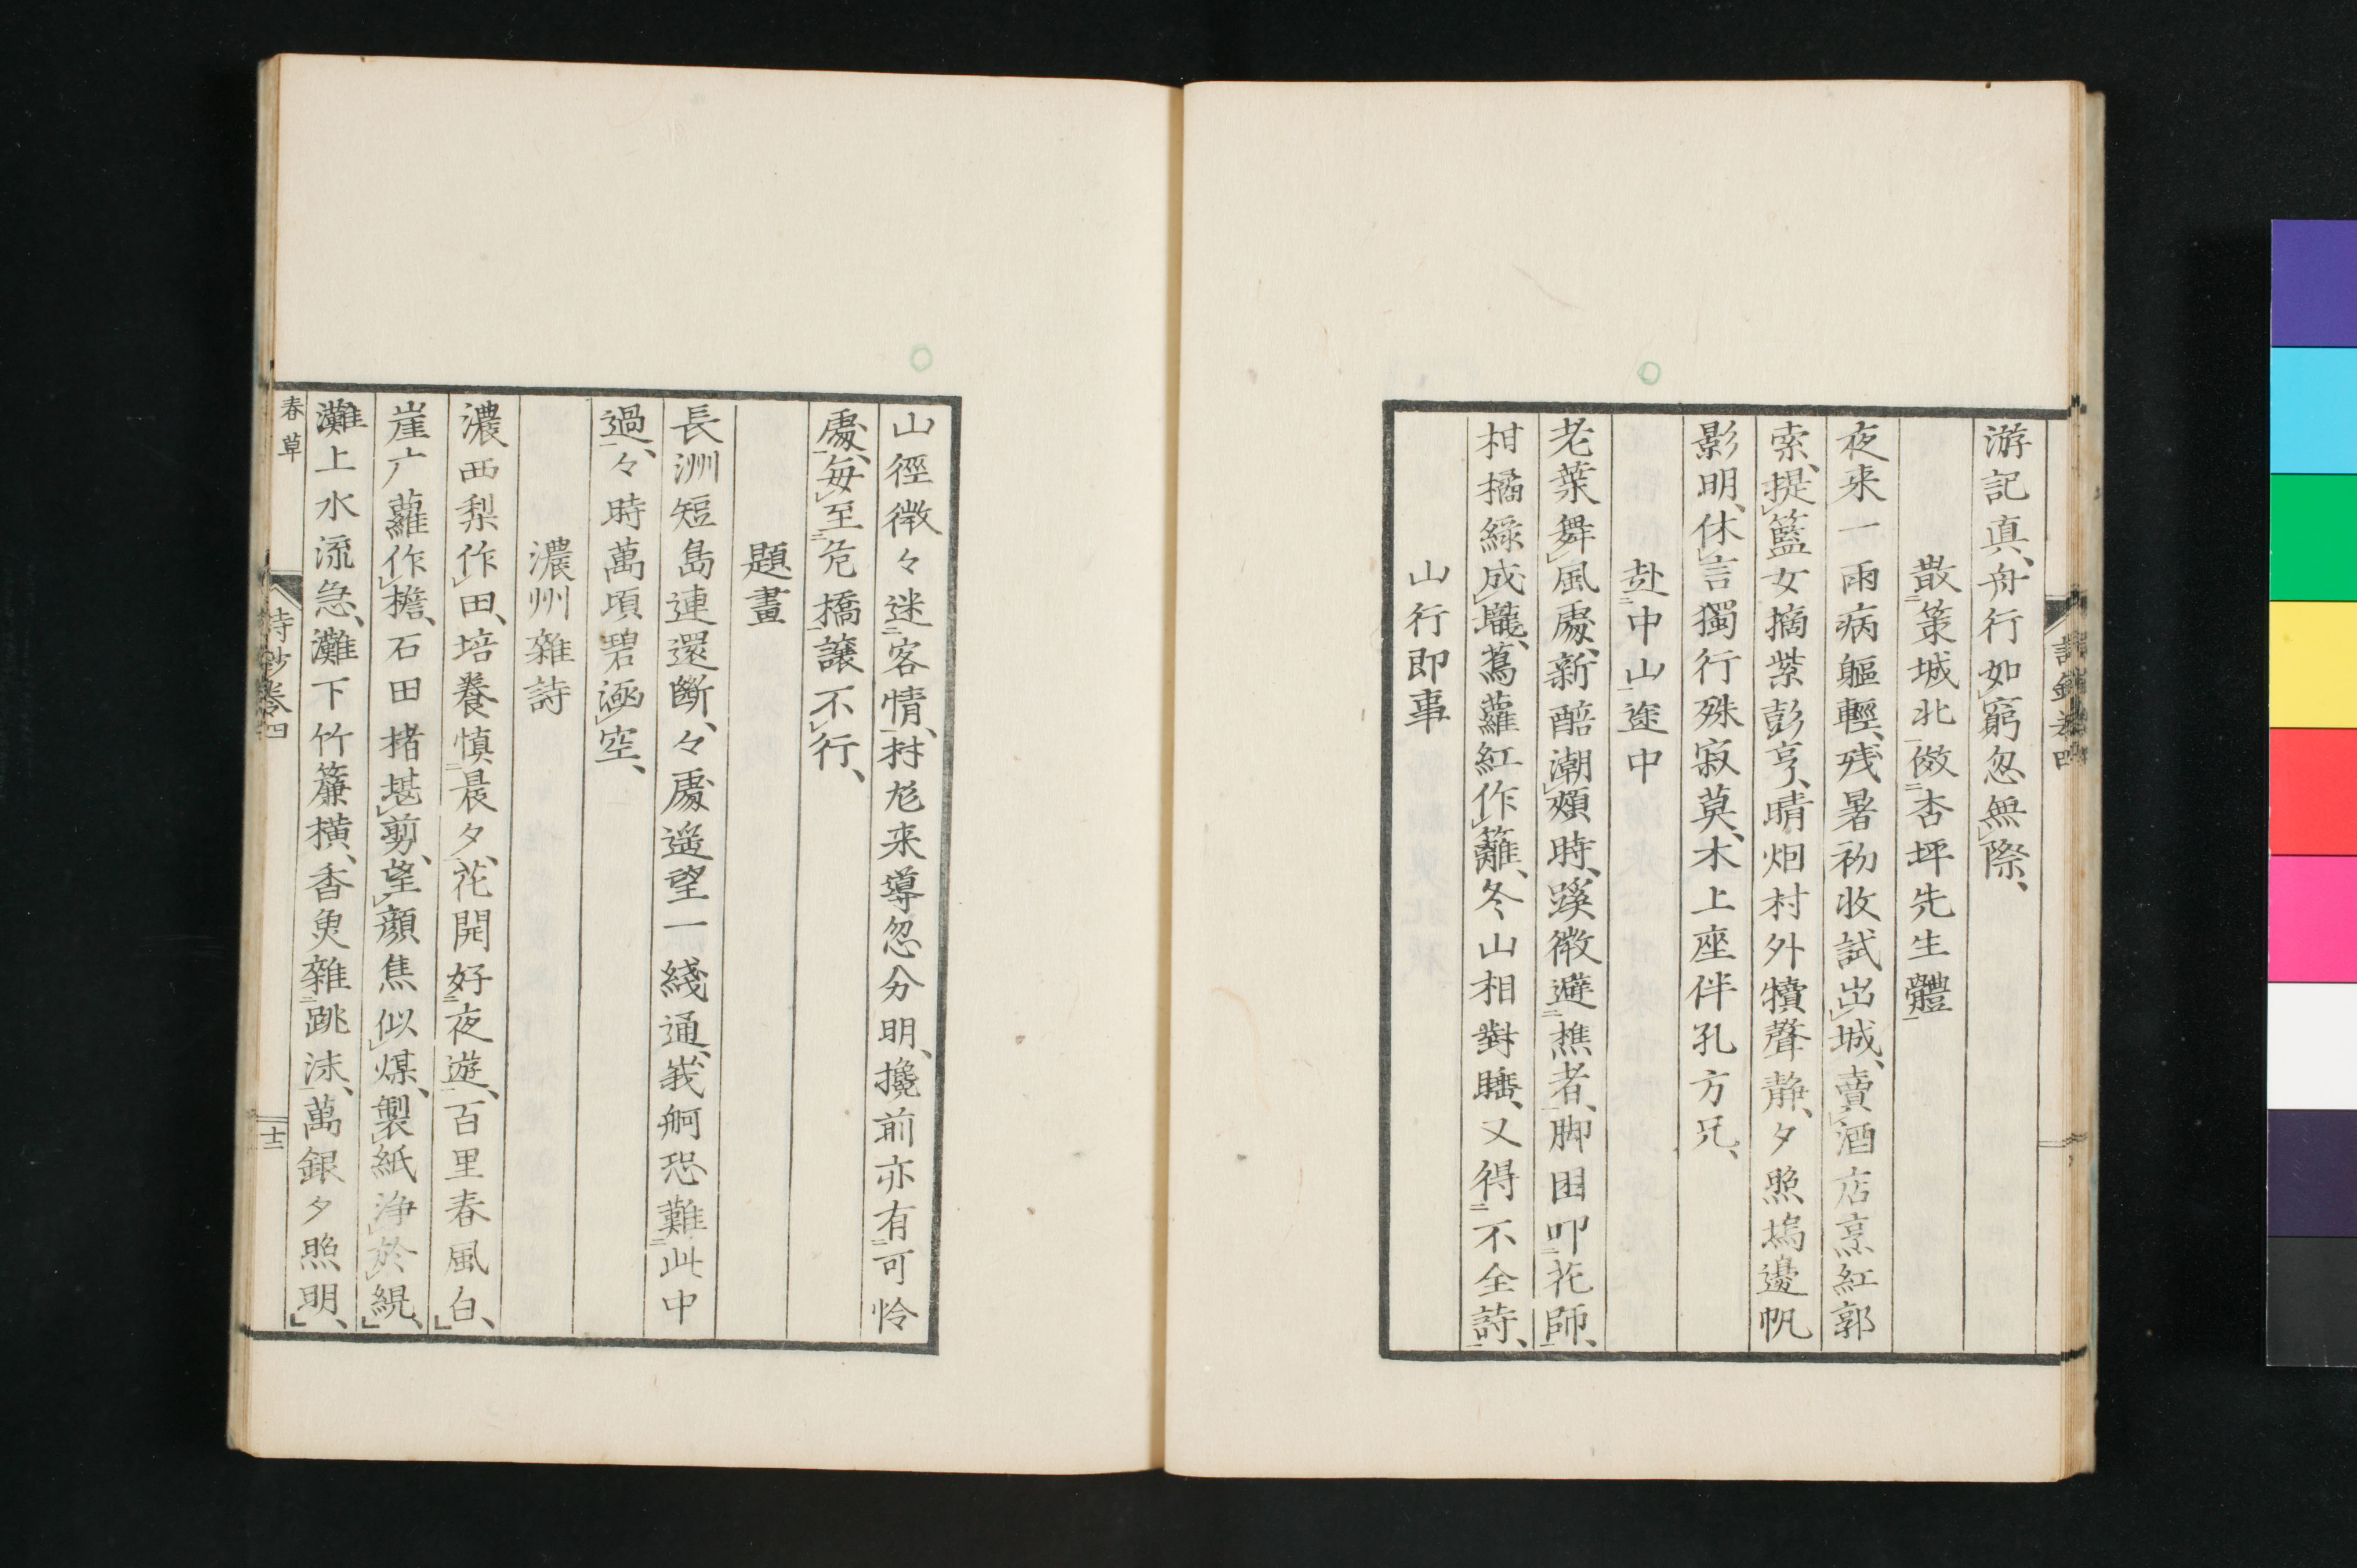 游記真、舟行如窮忽無際、
散策城北傚杏坪先生體
夜来一雨病軀輕、残暑初收試出城、賣酒店烹紅郭
索、提籃女摘紫彭亨、晴烟村外犢聲静、夕照塢邊帆
影明、休言獨行殊寂莫、木上座伴孔方兄、
赴中山途中
老葉舞風處、新醅潮頰時、蹊微避樵者、脚困叩花師、
柑橘綠成壠、蔦蘿紅作籬、冬山相對睡、又得不全詩、
山行即事
山徑微々迷客情、村尨来導忽分明、攙前亦有可怜
處、每至危橋讓不行、
題畫
長洲短島連還斷、々處遥望一綫通、峩舸恐難此中
過、々時萬頃碧涵空、
濃州雜詩
濃西梨作田、培養慎晨夕、花開好夜遊、百里春風白、
崖广蘿作檐、石田楮堪剪、望顔焦似煤、製紙浄於絸、
灘上水流急、灘下竹簾横、香魚雜跳沫、萬銀夕照明、
春草
詩鈔卷四
十二